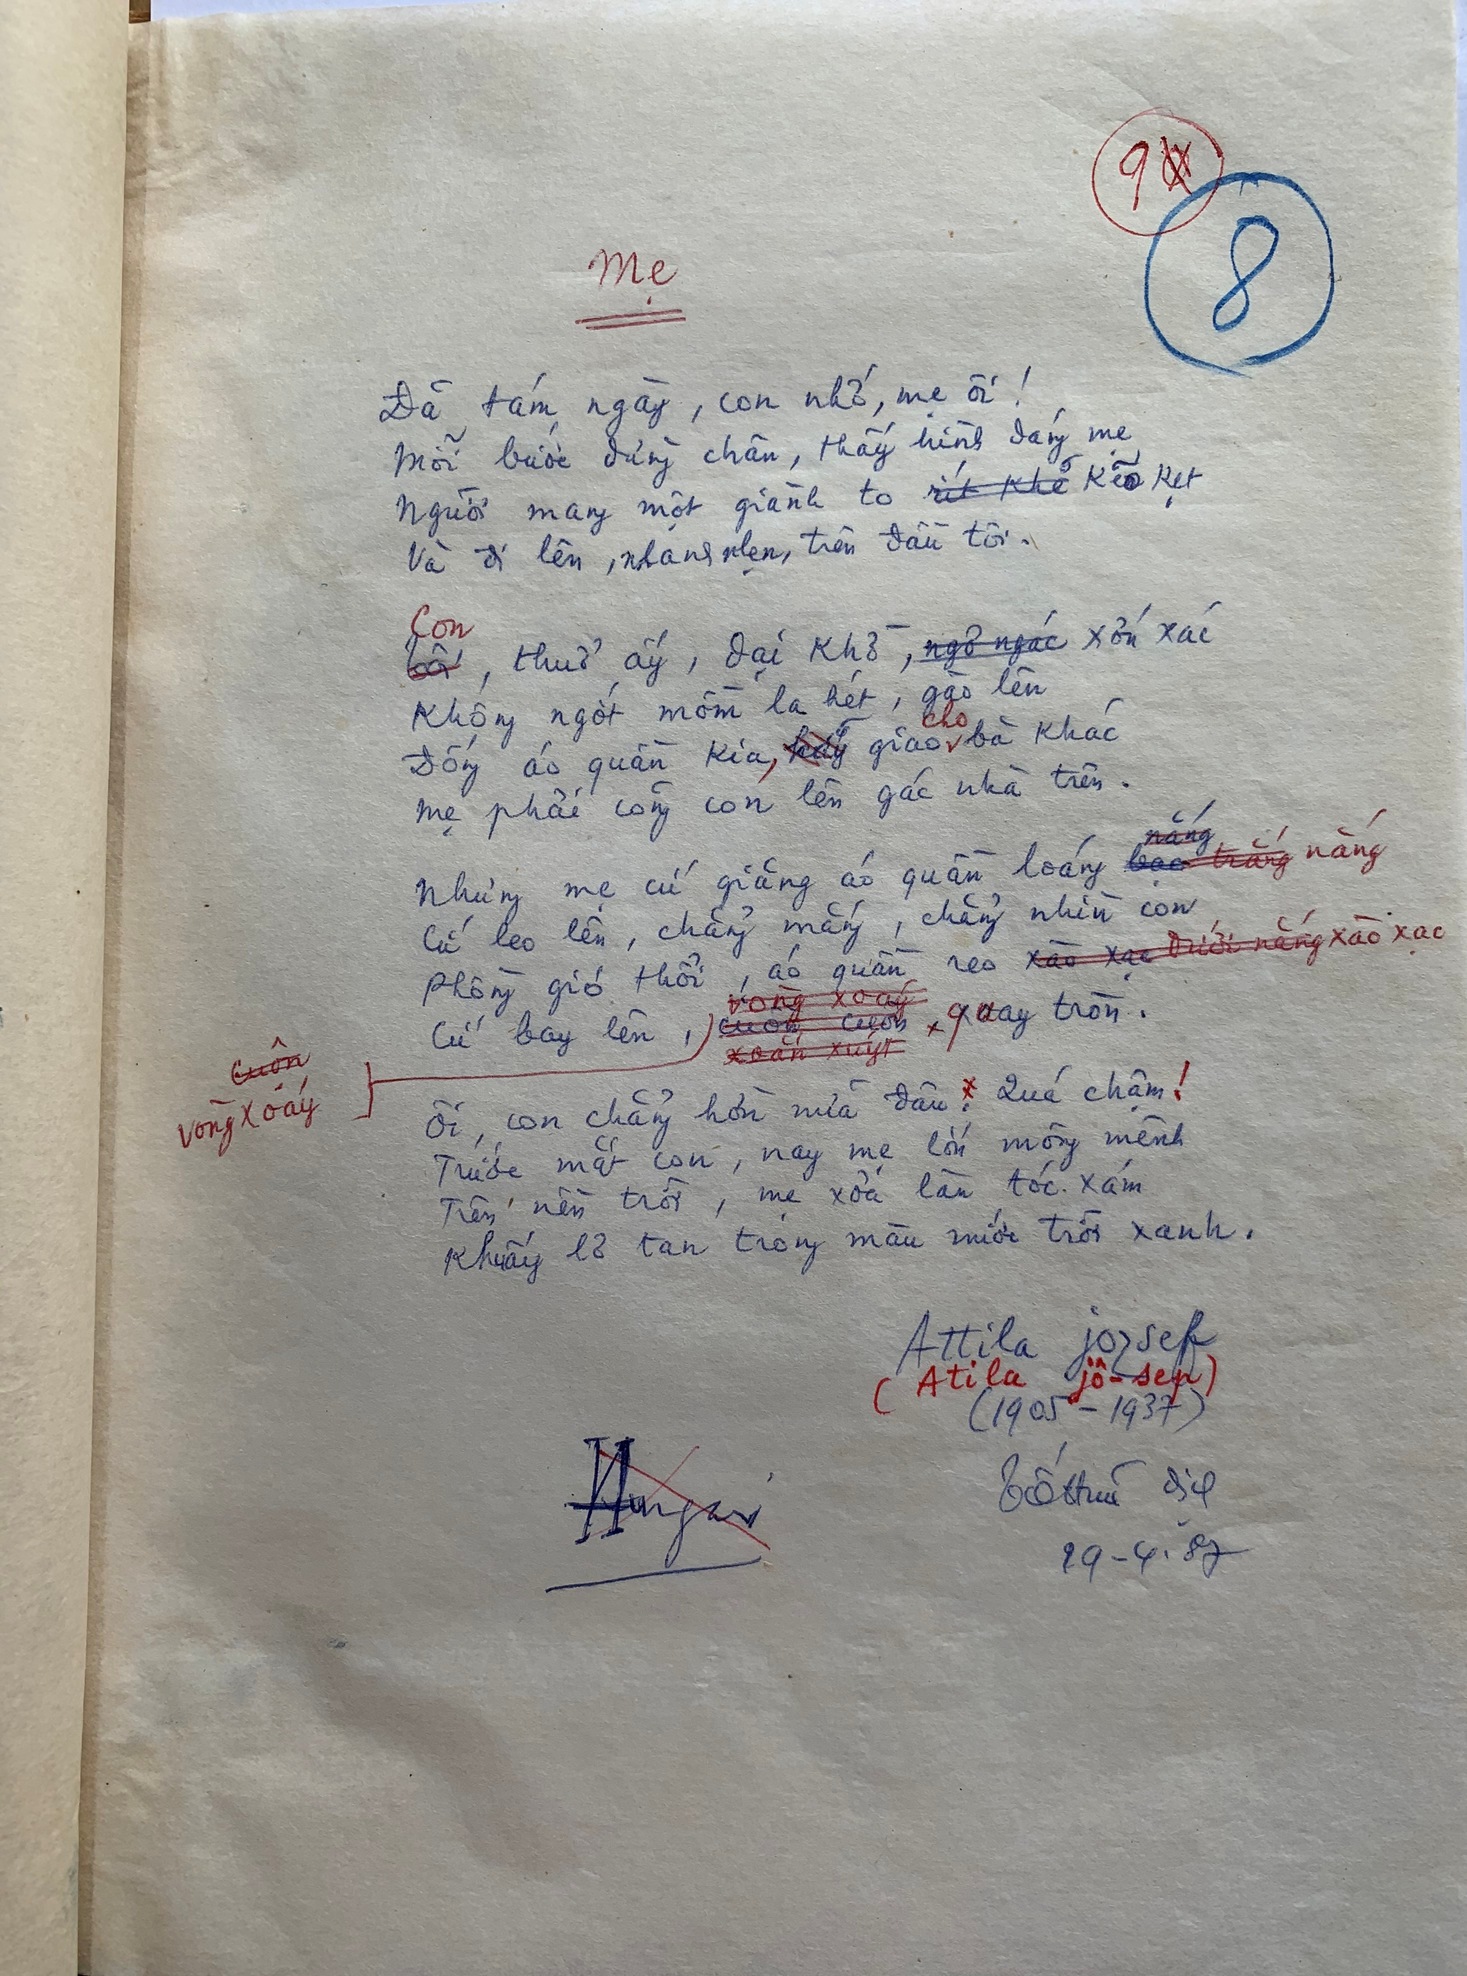 9
8
Mẹ
Đã tám ngày, con nhớ, mẹ ơi!
Mỗi bước dừng chân, thấy hình dáng mẹ
Người mang một giành to rất khẽ kẽo kẹt
Và đi lên, nhanh nhẹn, trên đầu tôi.
Con
tôi, thuở ấy, dại khờ, ngơ ngác xớn xác
Không ngớt mồm la hét, gào lên
cho
Đống áo quần kia, hãy giao bà khác
Mẹ phải cõng con lên gác nhà trên.
nắng
Nhưng mẹ cứ giăng áo quần loáng bạc trắng nắng
Cứ leo lên, chẳng mắng, chẳng nhìn con
Phồng gió thổi, áo quần reo xào xạc dưới nắng xào xạc
vòng xoáy
Cứ bay lên, cuồn cuộn quay tròn.
xoắn xuýt
cuồn
vòng xoáy
Ôi, con chẳng hờn nữa đâu! Quá chậm!
Trước mắt con, nay mẹ lớn mông mênh
Trên nền trời, mẹ xoã làn tóc xám
Khuấy lơ tan trong màu nước trời xanh.
Attila jozsef
(Atila jô-sep)
(1905 - 1937)
Tố Hữu dịch
Hungari
29-4-87